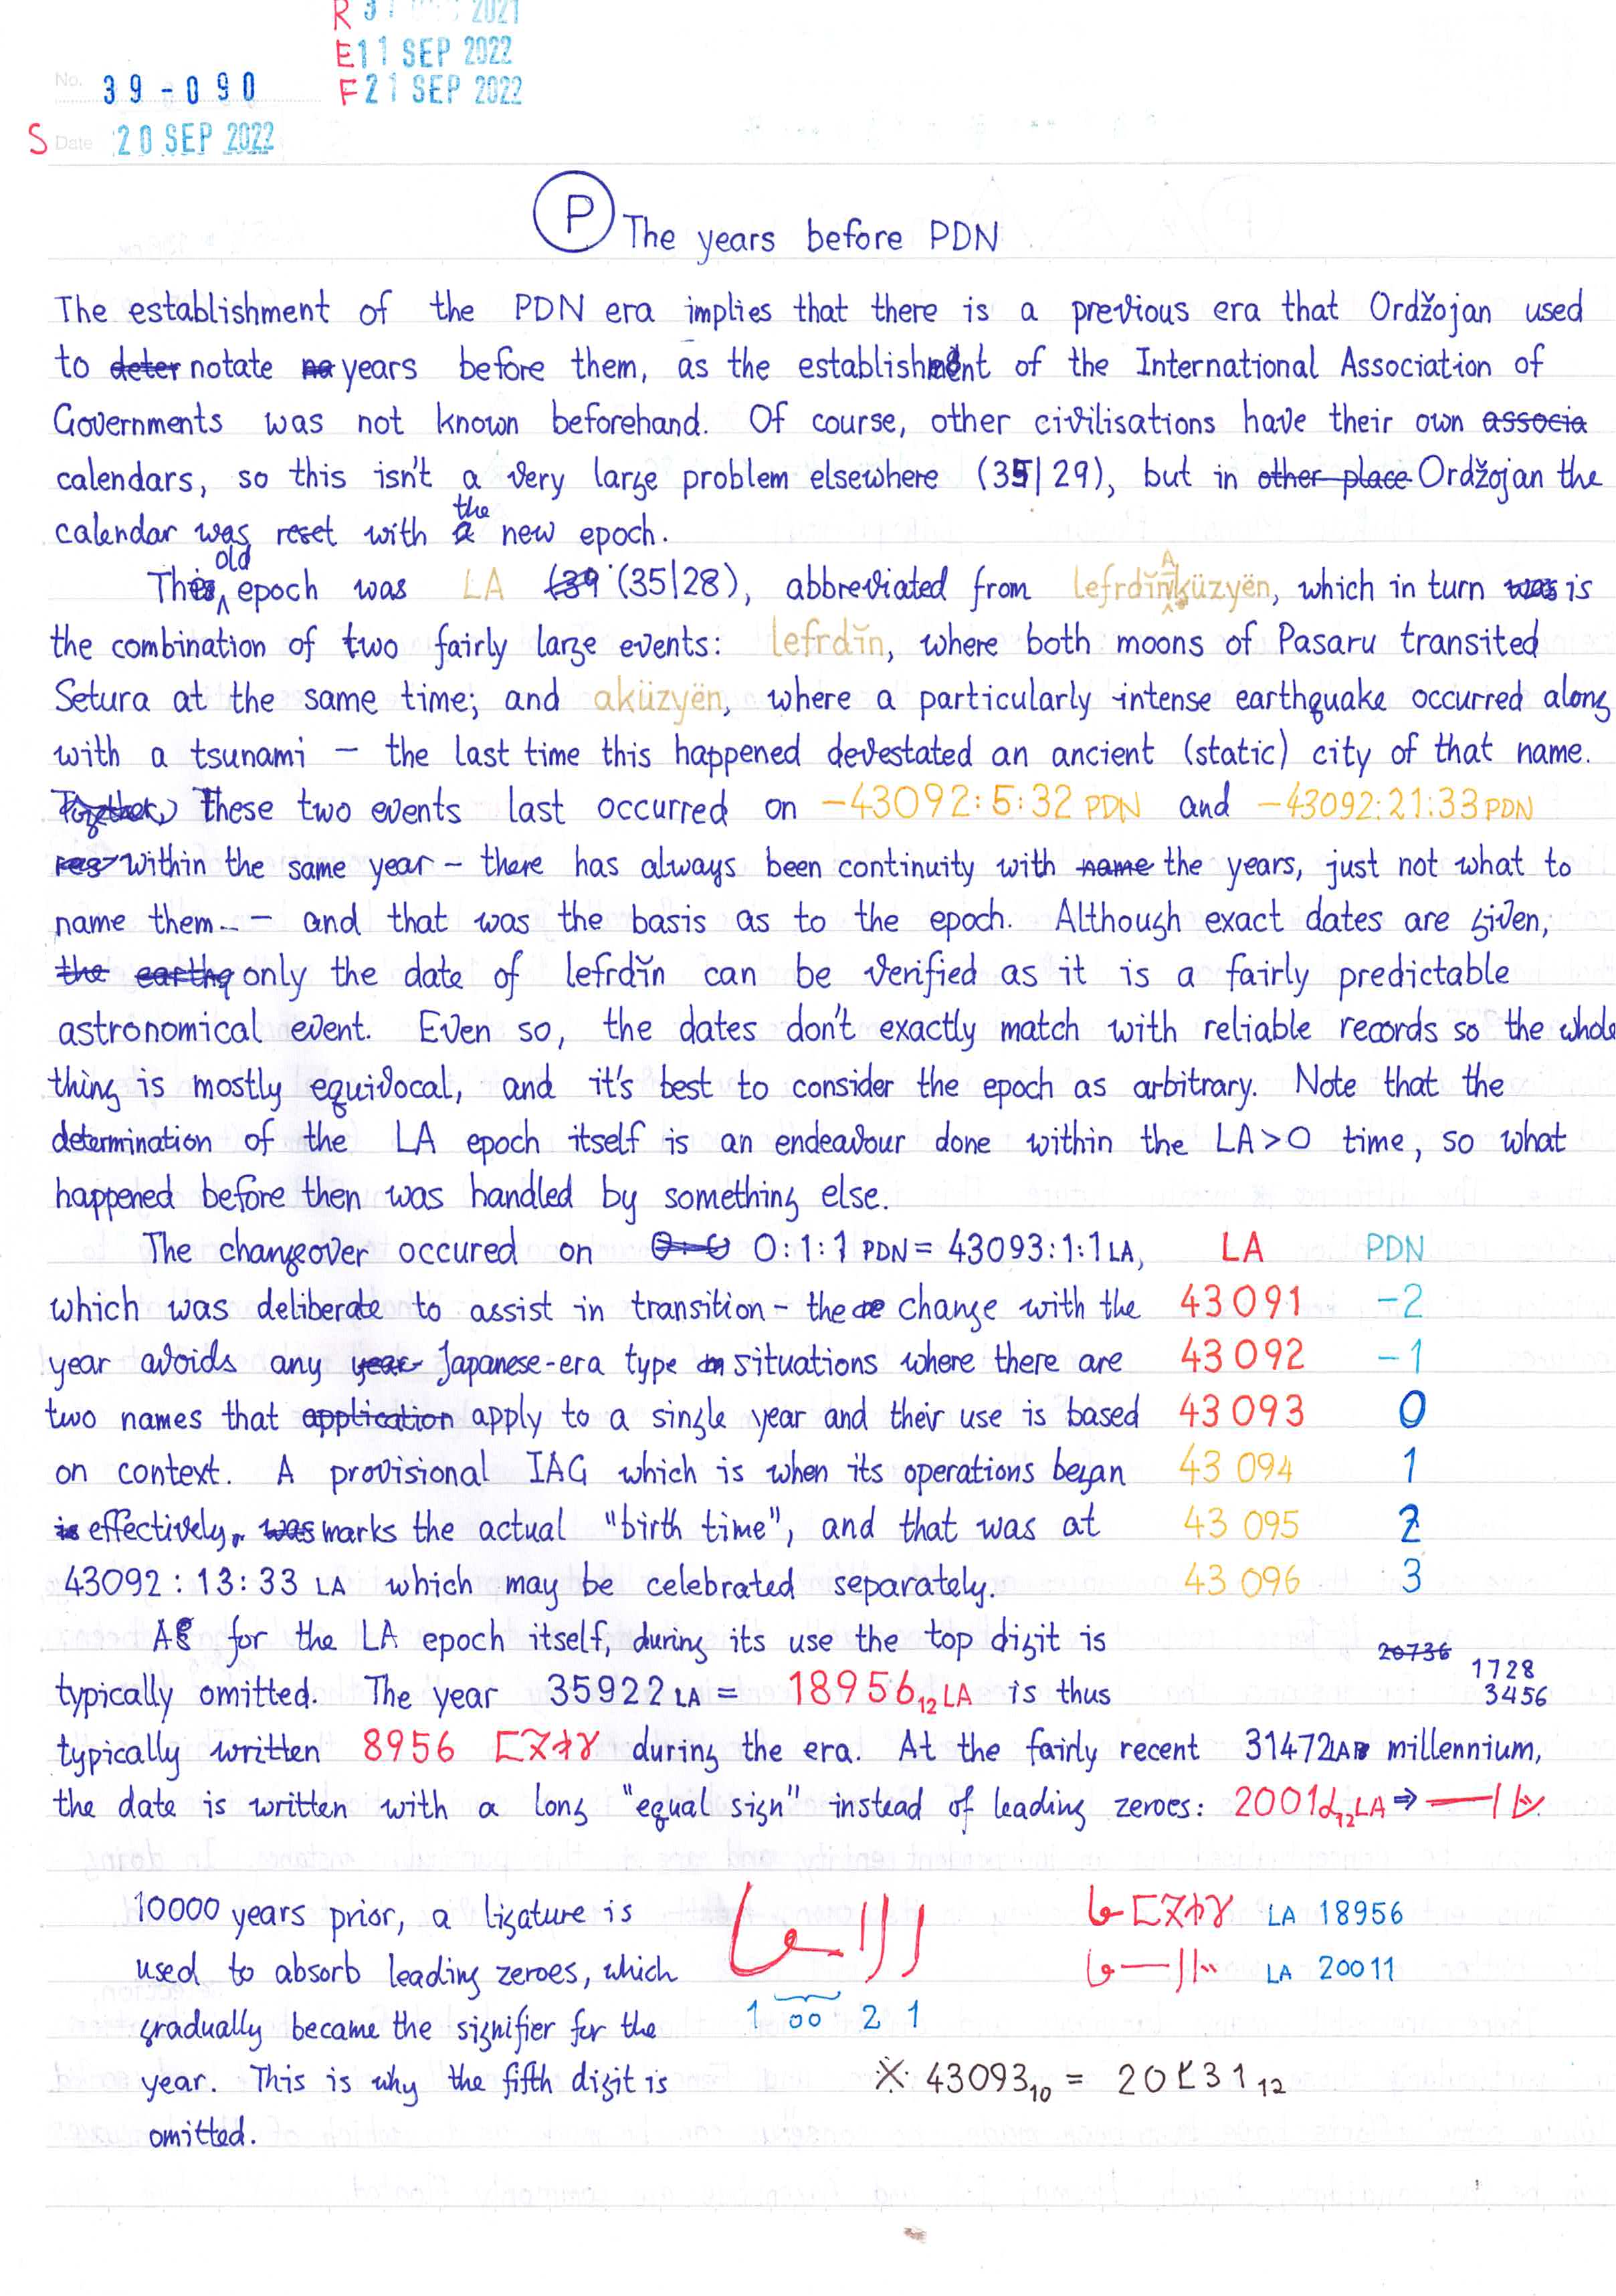 R 3 2021
E 11 SEP 2022
No. 39-090 F 21 SEP 2022
S Date 20 SEP 2022
P The years before PDN
The establishment of the PDN era implies that there is a previous era that Ordžojan used
to deter notate na years before them, as the establishment of the International Association of
Governments was not known beforehand. Of course, other civilisations have their own associa
calendars, so this isn't a very large problem elsewhere (35|29), but in other place Ordžojan the
calendar was reset with the new epoch.
This old epoch was LA (39 (35|28), abbreviated from lefrdĭnAküzyën, which in turn was is
the combination of two fairly large events: lefrdĭn, where both moons of Pasaru transited
Setura at the same time; and aküzyën, where a particularly intense earthquake occurred along
with a tsunami – the last time this happened devestated an ancient (static) city of that name.
Together, These two events last occurred on -43092:5:32 PDN and -43092:21:33 PDN
within the same year – there has always been continuity with name the years, just not what to
name them – and that was the basis as to the epoch. Although exact dates are given,
the earthq only the date of lefrdĭn can be verified as it is a fairly predictable
astronomical event. Even so, the dates don't exactly match with reliable records so the whole
thing is mostly equivocal, and it's best to consider the epoch as arbitrary. Note that the
determination of the LA epoch itself is an endeavour done within the LA>0 time, so what
happened before then was handled by something else.
The changeover occured on 0:1:1 PDN = 43093:1:1 LA,
which was deliberate to assist in transition – the change with the
year avoids any year Japanese-era type situations where there are
two names that application apply to a single year and their use is based
on context. A provisional IAG which is when its operations began
is effectively, was marks the actual "birth time", and that was at
43092:13:33 LA which may be celebrated separately.
LA PDN
43091 -2
43092 -1
43093 0
43 094 1
43 095 2
43 096 3
As for the LA epoch itself, during its use the top digit is
typically omitted. The year 35922 LA = 18956₁₂ LA is thus
20736
1728
3456
typically written 8956 during the era. At the fairly recent 31472 LA millennium,
the date is written with a long "equal sign" instead of leading zeroes: 2001 ₁₂ LA ⇒
10000 years prior, a ligature is
used to absorb leading zeroes, which
gradually became the signifier for the
year. This is why the fifth digit is
omitted.
1 00 2 1
LA 18956
LA 20011
※ 43093₁₀ = 20 31₁₂